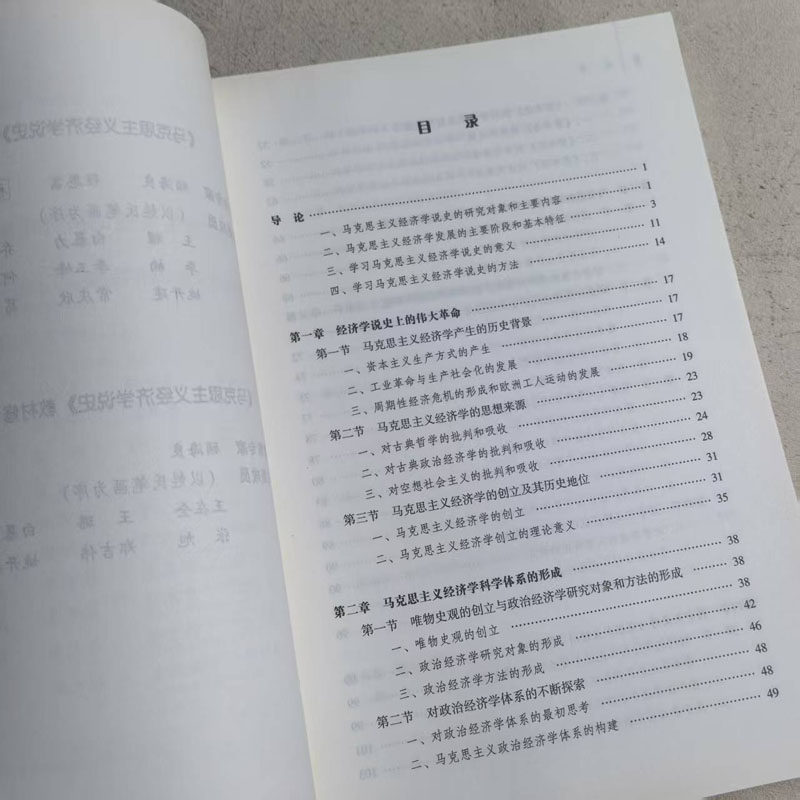 目 录
导 论 1
一、马克思主义经济学说史的研究对象和主要内容 1
二、马克思主义经济学发展的主要阶段和基本特征 3
三、学习马克思主义经济学说史的意义 11
四、学习马克思主义经济学说史的方法 14
第一章 经济学说史上的伟大革命 17
第一节 马克思主义经济学产生的历史背景 17
一、资本主义生产方式的产生 17
二、工业革命与生产社会化的发展 18
三、周期性经济危机的形成和欧洲工人运动的发展 19
第二节 马克思主义经济学的思想来源 23
一、对古典哲学的批判和吸收 23
二、对古典政治经济学的批判和吸收 24
三、对空想社会主义的批判和吸收 28
第三节 马克思主义经济学的创立及其历史地位 31
一、马克思主义经济学的创立 31
二、马克思主义经济学创立的理论意义 35
第二章 马克思主义经济学科学体系的形成 38
第一节 唯物史观的创立与政治经济学研究对象和方法的形成 38
一、唯物史观的创立 38
二、政治经济学研究对象的形成 42
三、政治经济学方法的形成 46
第二节 对政治经济学体系的不断探索 48
一、对政治经济学体系的最初思考 48
二、马克思主义政治经济学体系的构建 49